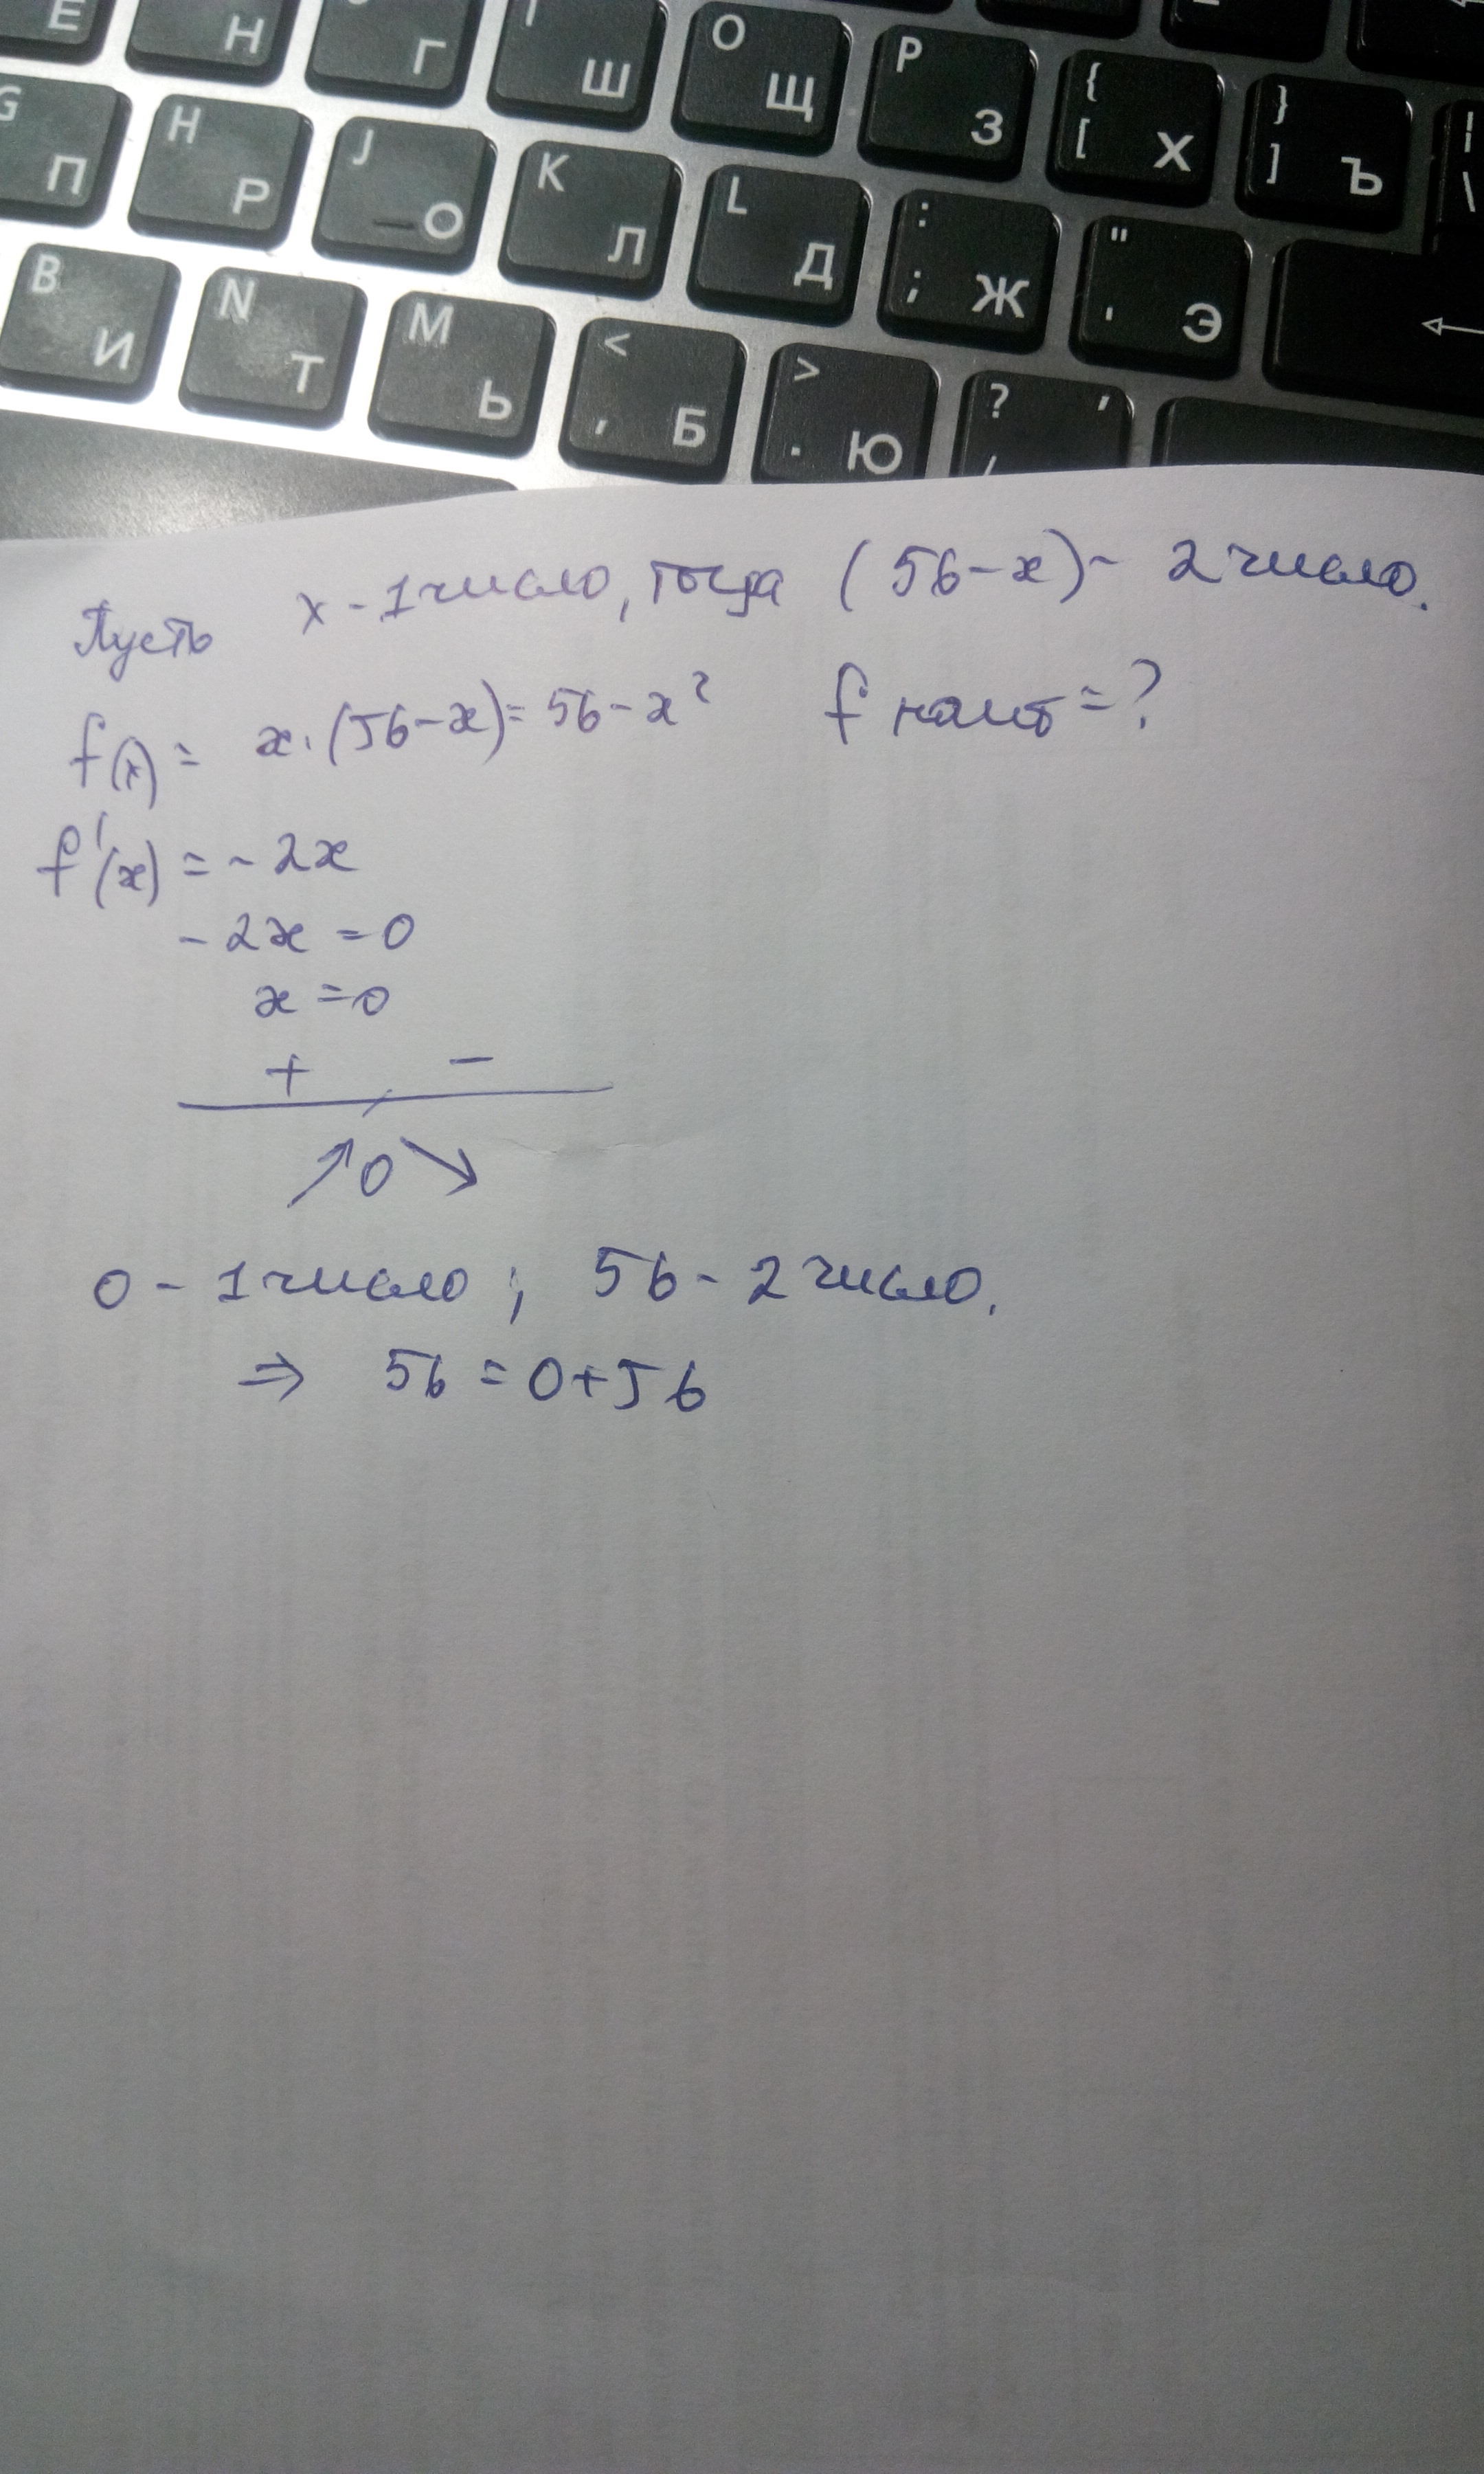 E Н Г Ш O Щ P З { [ Х } ] Ъ | \
G П H Р J О K Л L Д : ; Ж " ' Э
B И N Т M Ь < , Б > . Ю ? / ,
Пусть x - 1 число, тогда (56-x) - 2 число.
f(x) = x·(56-x) = 56-x² f наиб = ?
f'(x) = -2x
-2x = 0
x = 0
+ -
↗ 0 ↘
0 - 1 число; 56 - 2 число.
⇒ 56 = 0+56